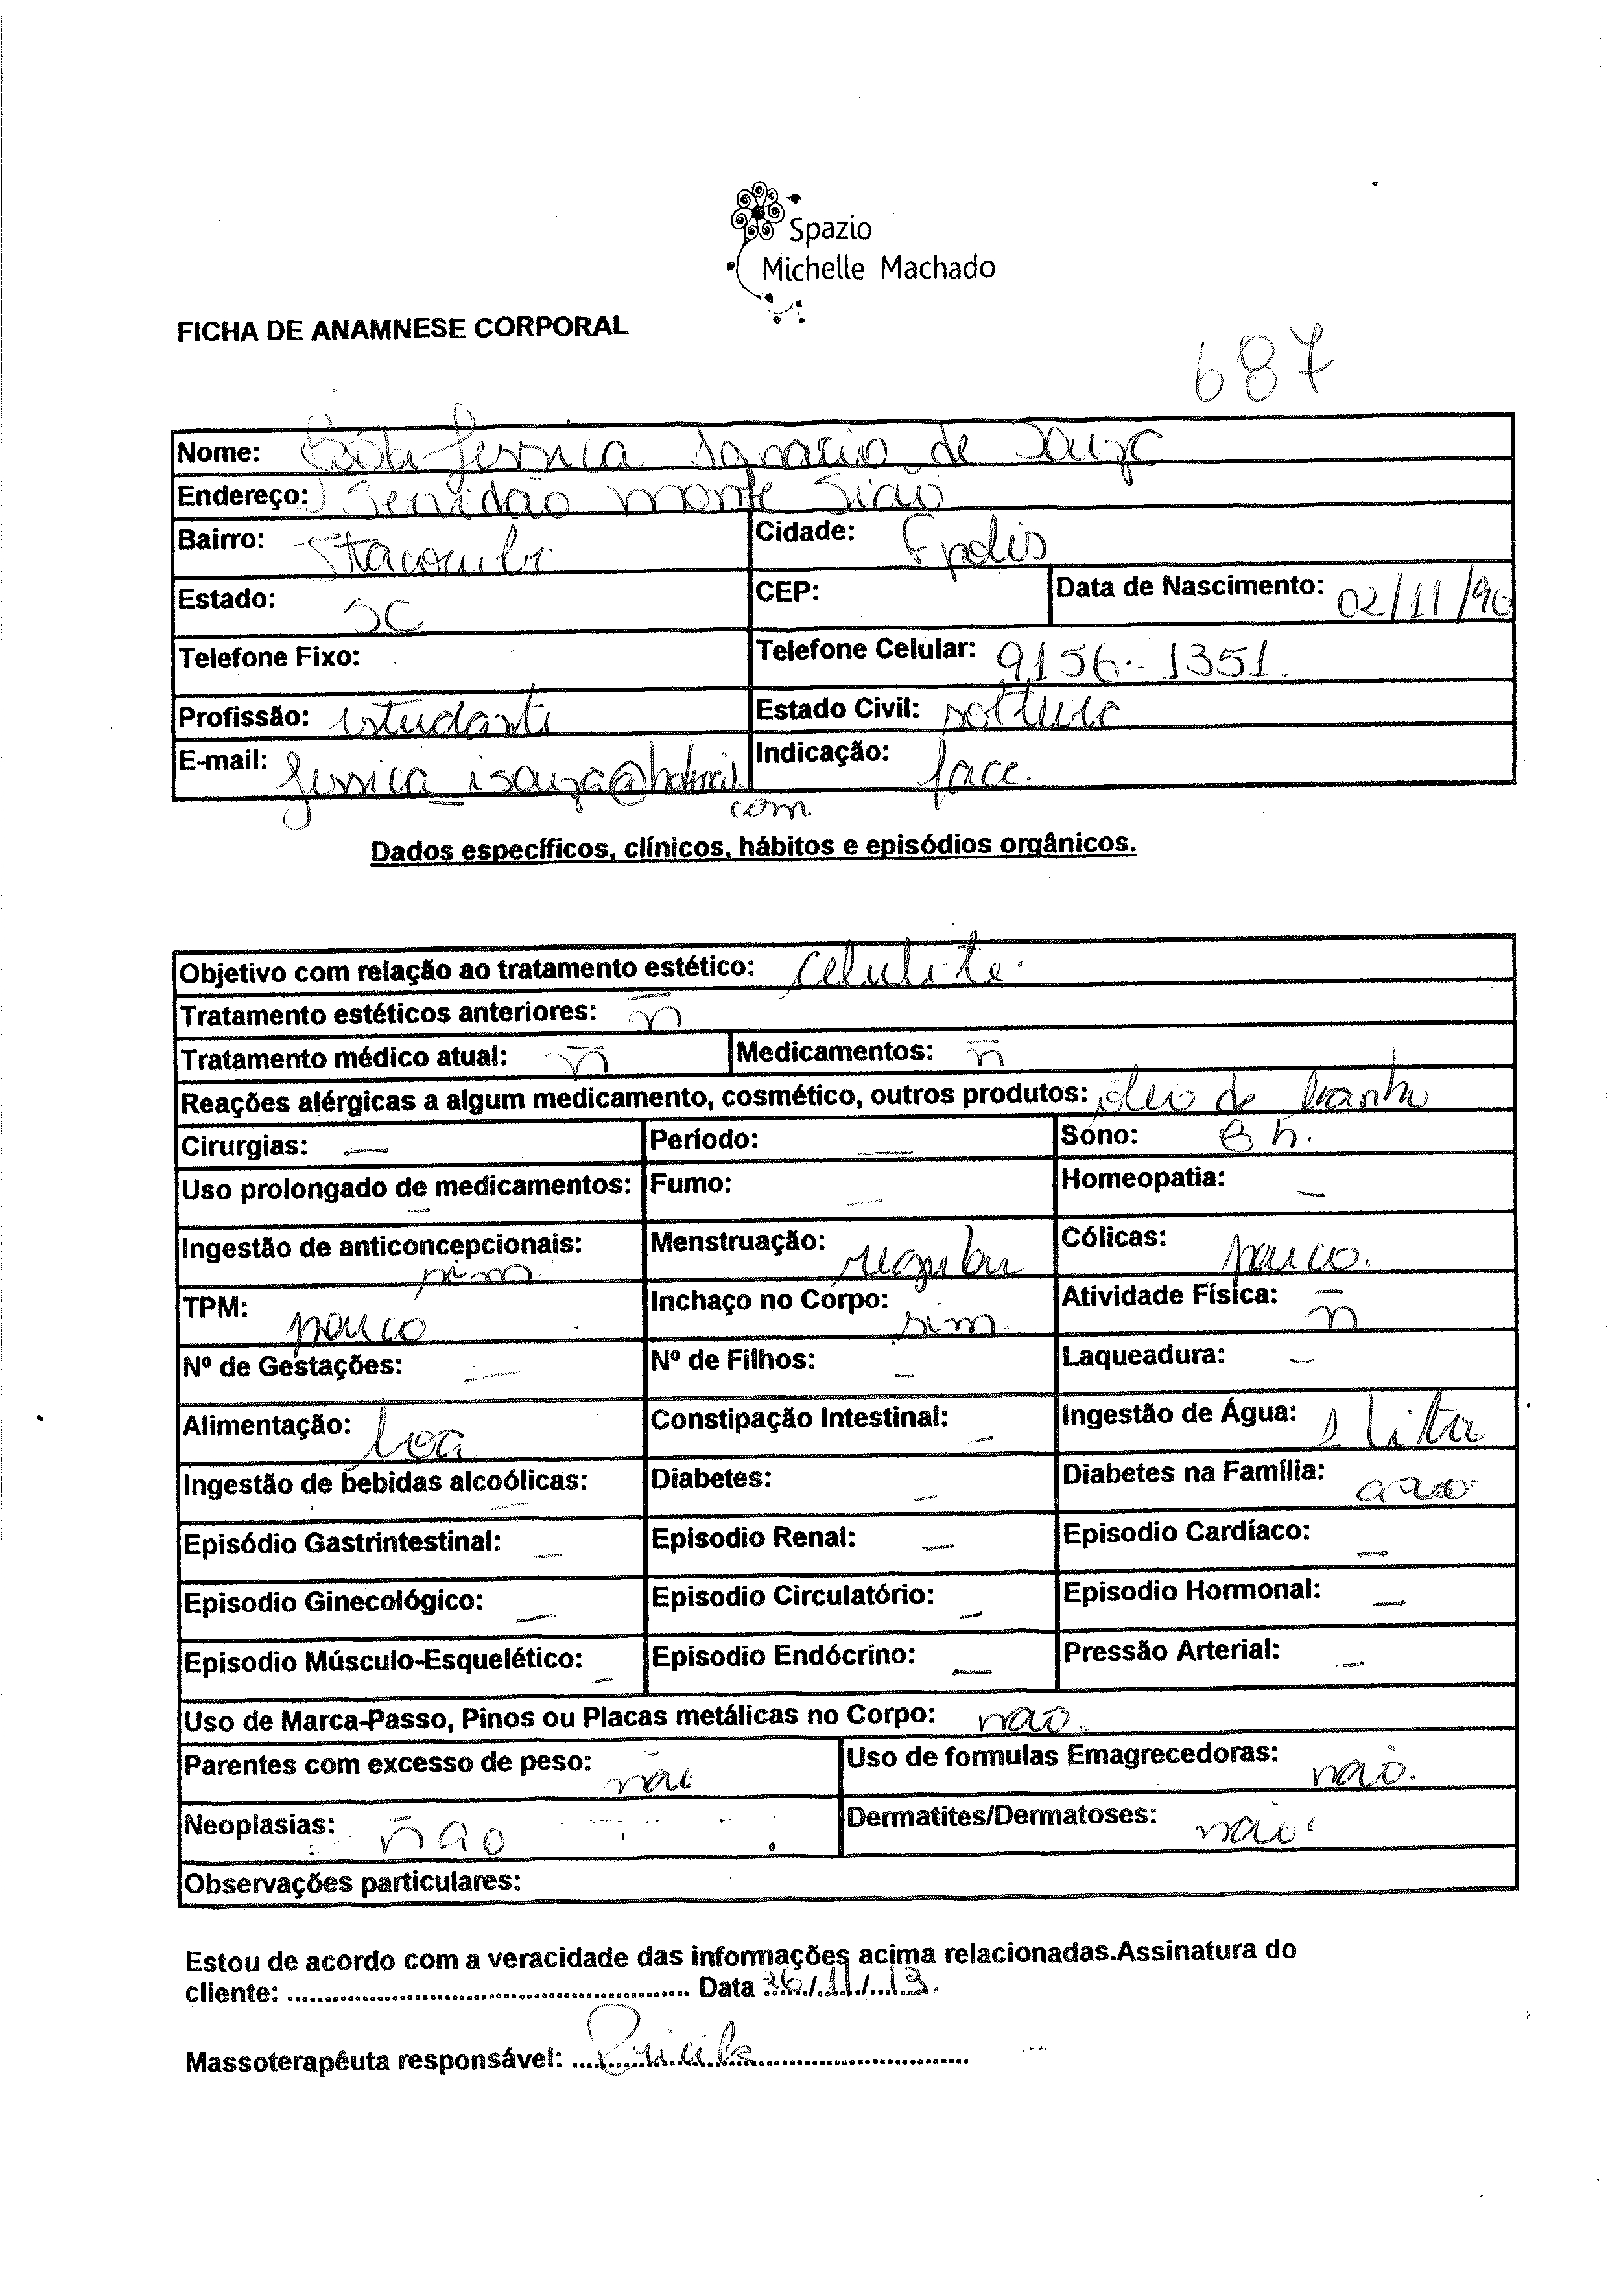 Spazio
Michelle Machado
FICHA DE ANAMNESE CORPORAL
687
Nome: Jessica Ignacio de Souza
Endereço: Servidão monte Sião
Bairro: Itacorubi Cidade: Fpolis
Estado: SC CEP: Data de Nascimento: 02/11/90
Telefone Fixo: Telefone Celular: 9156-1351.
Profissão: estudante Estado Civil: solteira
E-mail: jessica_isouza@hotmail. Indicação: face.
com.
Dados específicos, clínicos, hábitos e episódios orgânicos.
Objetivo com relação ao tratamento estético: celulite.
Tratamento estéticos anteriores: ñ
Tratamento médico atual: ñ Medicamentos: ñ
Reações alérgicas a algum medicamento, cosmético, outros produtos: óleo de banho
Cirurgias: — Período: — Sono: 8 h.
Uso prolongado de medicamentos: — Fumo: — Homeopatia: —
Ingestão de anticoncepcionais: sim Menstruação: regular Cólicas: pouco.
TPM: pouco Inchaço no Corpo: sim. Atividade Física: ñ
Nº de Gestações: — Nº de Filhos: — Laqueadura: —
Alimentação: boa Constipação Intestinal: — Ingestão de Água: 1 litro
Ingestão de bebidas alcoólicas: — Diabetes: — Diabetes na Família:
Episódio Gastrintestinal: — Episodio Renal: — Episodio Cardíaco: —
Episodio Ginecológico: — Episodio Circulatório: — Episodio Hormonal: —
Episodio Músculo-Esquelético: — Episodio Endócrino: — Pressão Arterial: —
Uso de Marca-Passo, Pinos ou Placas metálicas no Corpo: não.
Parentes com excesso de peso: não Uso de formulas Emagrecedoras: não.
Neoplasias: não Dermatites/Dermatoses: não
Observações particulares:
Estou de acordo com a veracidade das informações acima relacionadas.Assinatura do
cliente: ........ Data 26/11/13.
Massoterapêuta responsável: Pricila